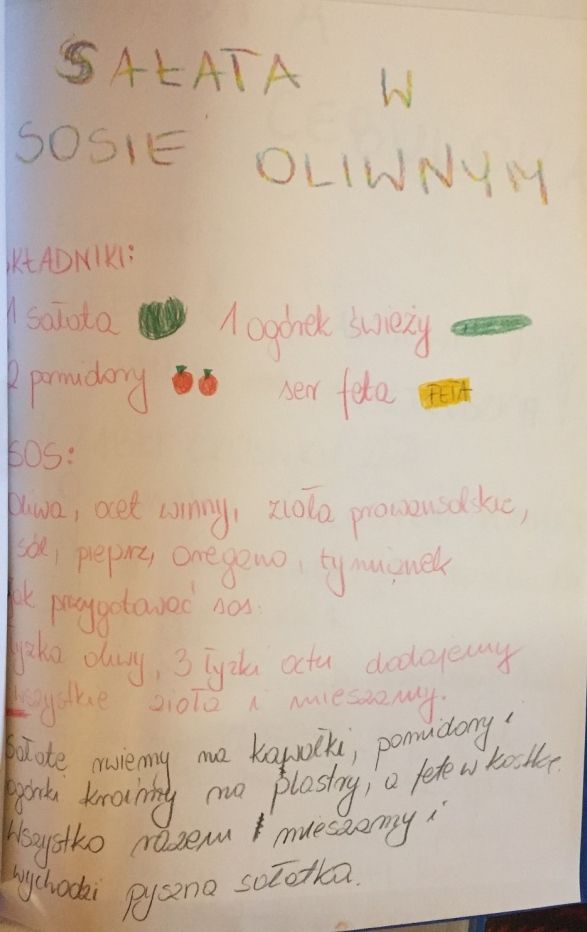 SAŁATA W
SOSIE OLIWNYM
SKŁADNIKI:
1 sałata 1 ogórek świeży
2 pomidory ser feta FETA
SOS:
Oliwa, ocet winny, zioła prowansalskie,
sól, pieprz, oregano, tymianek
Jak przygotować sos:
łyżka oliwy, 3 łyżki octu dodajemy
wszystkie zioła i mieszamy.
Sałatę rwiemy na kawałki, pomidory i
ogórki kroimy na plastry, a fetę w kostkę.
Wszystko razem mieszamy i
wychodzi pyszna sałatka.